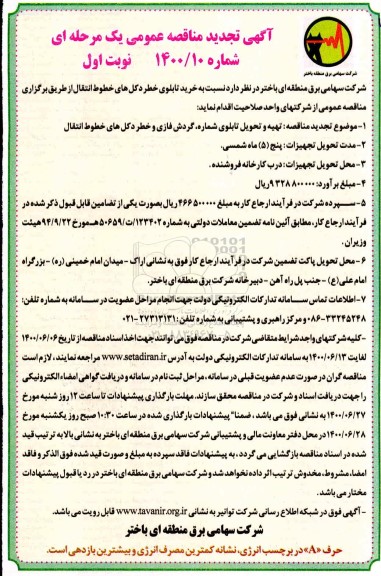 آگهی تجدید مناقصه عمومی یک مرحله ای
شماره ۱۴۰۰/۱۰ نوبت اول
شرکت سهامی برق منطقه ای باختر
شرکت سهامی برق منطقه ای باختر در نظر دارد نسبت به خرید تابلوی خطر دکل های خطوط انتقال از طریق برگزاری
مناقصه عمومی از شرکتهای واحد صلاحیت اقدام نماید:
۱- موضوع تجدید مناقصه : تهیه و تحویل تابلوی شماره، گردش فازی و خطر دکل های خطوط انتقال
۲- مدت تحویل تجهیزات : پنج (۵) ماه شمسی.
۳- محل تحویل تجهیزات : درب کارخانه فروشنده .
۴- مبلغ برآورد: ۹۳۲۸۸۰۰۰۰۰ ریال
۵- سـپرده شرکت در فرآیند ارجاع کار به مبلغ ۴۶۶۵۰۰۰۰۰ ریال بصورت یکی از تضامین قابل قبول ذکر شده در
فرآیند ارجاع کار، مطابق آئین نامه تضمین معاملات دولتی به شماره ۱۲۳۴۰۲/ت/۵۰۶۵۹هـ مورخ ۹۴/۹/۲۲ هیئت
وزیران .
۶- محل تحویل پاکت تضمین شرکت در فرآیند ارجاع کار فوق به نشانی اراک - میدان امام خمینی (ره) - بزرگراه
امام علی(ع) - جنب پل راه آهن - دبیرخانه شرکت برق منطقه ای باختر.
۷- اطلاعات تماس سـامانه تدارکات الکترونیکی دولت جهت انجام مراحل عضویت در سـامانه به شماره تلفن:
۰۸۶-۳۳۲۴۵۲۴۸ و مرکز راهبری و پشتیبانی به شماره تلفن : ۰۲۱-۲۷۳۱۳۱۳۱
-کلیه شرکتهای واجد شرایط متقاضی شرکت در مناقصه فوق می توانند جهت اخذ اسناد مناقصه از تاریخ ۱۴۰۰/۰۶/۰۶
لغایت ۱۴۰۰/۰۶/۱۳ به سامانه تدارکات الکترونیکی دولت به آدرس www.setadiran.ir مراجعه نمایند، لازم است
مناقصه گران در صورت عدم عضویت قبلی در سامانه، مراحل ثبت نام در سامانه و دریافت گواهی امضاء الکترونیکی
را جهت دریافت اسناد و شرکت در مناقصه محقق سازند. مهلت بارگذاری پیشنهادات تا ساعت ۱۲ روز شنبه مورخ
۱۴۰۰/۰۶/۲۷ به نشانی فوق می باشد ، ضمنا" پیشنهادات بارگذاری شده در ساعت ۱۰:۳۰ صبح روز یکشنبه مورخ
۱۴۰۰/۰۶/۲۸ در محل دفتر معاونت مالی و پشتیبانی شرکت سهامی برق منطقه ای باختر به نشانی بالا به ترتیب قید
شده در اسناد مناقصه بازگشایی می گردد ، به پیشنهادات فاقد سپرده به مبلغ و صورت قید شده فوق الذکر و فاقد
امضا، مشروط، مخدوش ترتیب اثر داده نخواهد شد و شرکت سهامی برق منطقه ای باختر در رد یا قبول پیشنهادات
مختار می باشد.
-آگهی فوق در شبکه اطلاع رسانی شرکت توانیر به نشانی www.tavanir.org.ir قابل رویت می باشد.
شرکت سهامی برق منطقه ای باختر
حرف «A» در برچسب انرژی، نشانه کمترین مصرف انرژی و بیشترین بازدهی است.